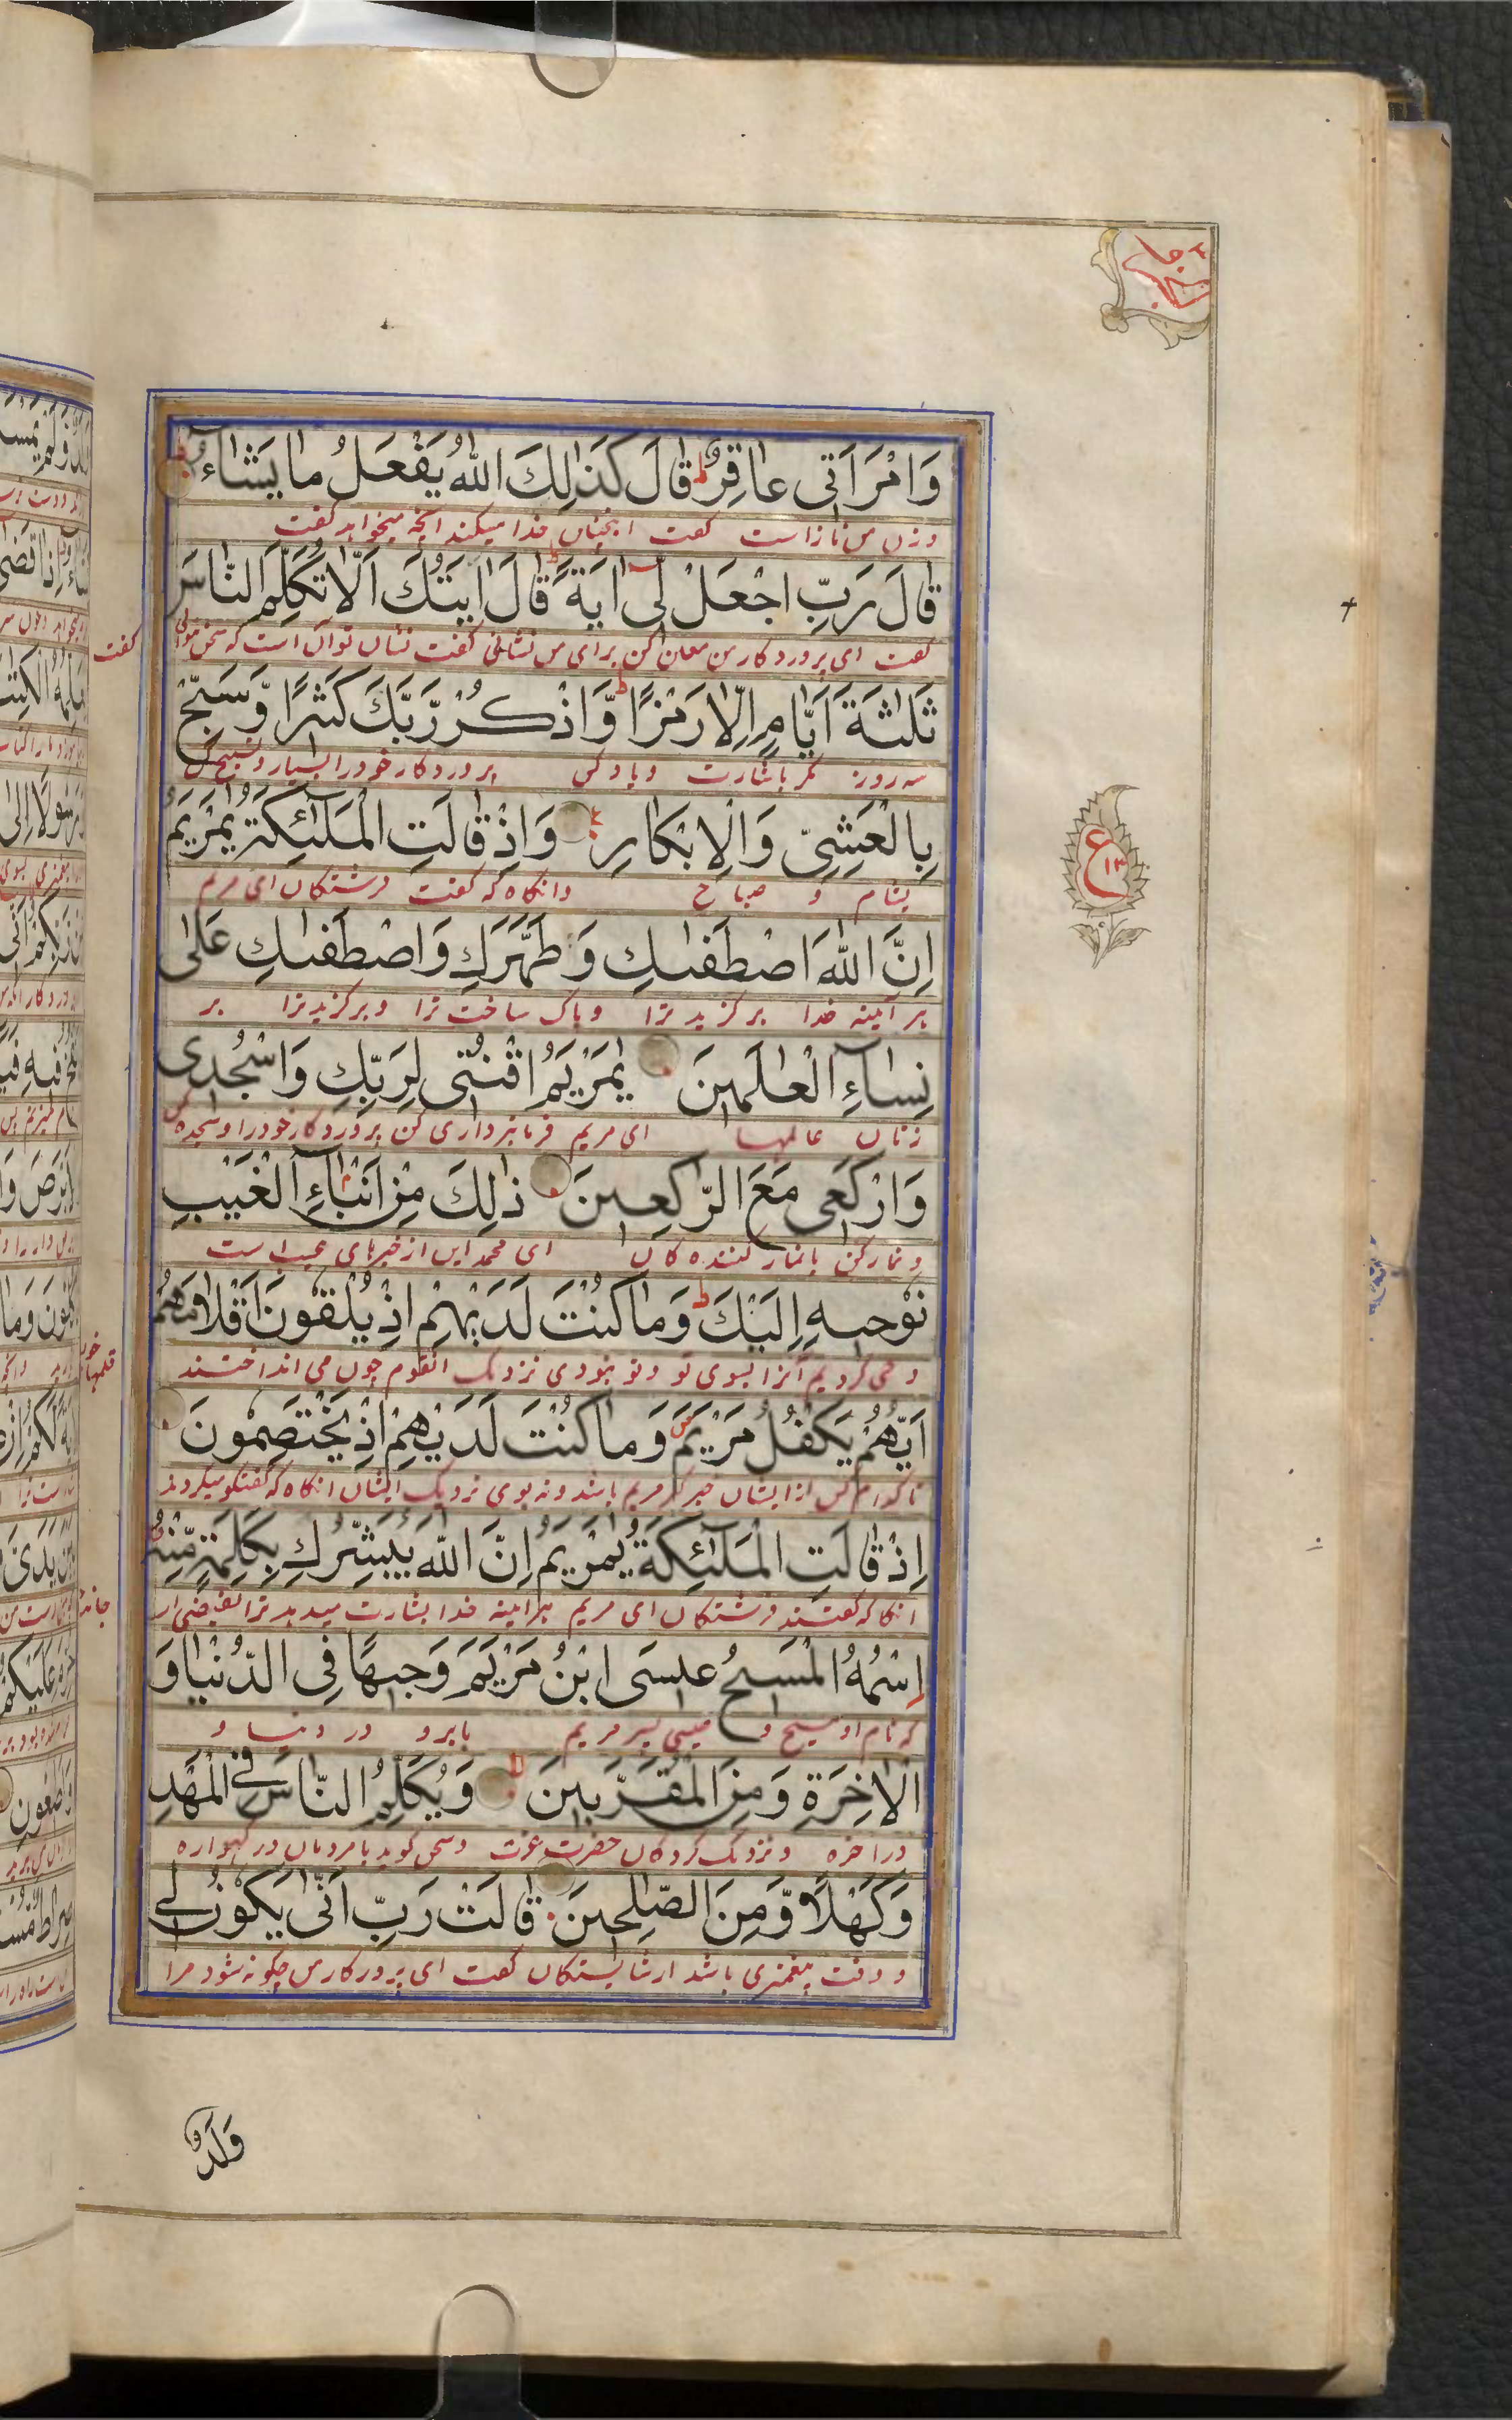 وَامْرَاَتِی عَاقِرٌ ط قَالَ كَذٰلِكَ اللّٰهُ یَفْعَلُ مَا یَشَآءُ
وزن من نازاست گفت اینچنین خدا میکند انچه میخواهد گفت
قَالَ رَبِّ اجْعَلْ لِّیْ اٰیَةً ط قَالَ اٰیَتُكَ اَلَّا تُكَلِّمَ النَّاسَ
گفت ای پروردگار من معین کن برای من نشانی گفت نشان تو آن است که سخن نگوئی
گفت
ثَلٰثَةَ اَیَّامٍ اِلَّا رَمْزًا ط وَّاذْكُرْ رَّبَّكَ كَثِیْرًا وَّسَبِّحْ
سه روز مگر باشارت و یاد کن پروردگار خود را بسیار و تسبیح کن
بِالْعَشِیِّ وَالْاِبْكَارِ وَاِذْ قَالَتِ الْمَلٰٓئِكَةُ یٰمَرْیَمُ
بشام و صباح وانگاه که گفت فرشتگان ای مریم
اِنَّ اللّٰهَ اصْطَفٰىكِ وَطَهَّرَكِ وَاصْطَفٰىكِ عَلٰی
هر آئینه خدا برگزید ترا و پاک ساخت ترا و برگزید ترا بر
نِسَآءِ الْعٰلَمِیْنَ یٰمَرْیَمُ اقْنُتِیْ لِرَبِّكِ وَاسْجُدِیْ
زنان عالمها ای مریم فرمانبرداری کن پروردگار خود را و سجده کن
وَارْكَعِیْ مَعَ الرّٰكِعِیْنَ ذٰلِكَ مِنْ اَنْۢبَآءِ الْغَیْبِ
و نماز کن با نماز کننده کان ای محمد این از خبرهای غیب است
نُوْحِیْهِ اِلَیْكَ ط وَمَا كُنْتَ لَدَیْهِمْ اِذْ یُلْقُوْنَ اَقْلَامَهُمْ
وحی کردیم آنرا بسوی تو و تو نبودی نزدیک انقوم چون می انداختند
قلمهای خود
اَیُّهُمْ یَكْفُلُ مَرْیَمَ ص وَمَا كُنْتَ لَدَیْهِمْ اِذْ یَخْتَصِمُوْنَ
تا کدام کس از ایشان خبرگیر مریم باشد و نه بودی نزدیک ایشان انگاه که گفتگو میکردند
اِذْ قَالَتِ الْمَلٰٓئِكَةُ یٰمَرْیَمُ اِنَّ اللّٰهَ یُبَشِّرُكِ بِكَلِمَةٍ مِّنْهُ
انگاه که گفتند فرشتگان ای مریم هرآینه خدا بشارت میدهد ترا
اِسْمُهُ الْمَسِیْحُ عِیْسَی ابْنُ مَرْیَمَ وَجِیْهًا فِی الدُّنْیَا وَ
که نام او مسیح و عیسی پسر مریم بابرو در دنیا و
الْاٰخِرَةِ وَمِنَ الْمُقَرَّبِیْنَ وَیُكَلِّمُ النَّاسَ فِی الْمَهْدِ
در اخره و نزدیک کردگان حضرت عزت و سخن گوید با مردمان در گهواره
وَكَهْلًا وَّمِنَ الصّٰلِحِیْنَ قَالَتْ رَبِّ اَنّٰی یَكُوْنُ لِیْ
و وقت پیغمبری باشد از شایستگان گفت ای پروردگار من چگونه شود مرا
وَلَدٌ
ع
۱۳